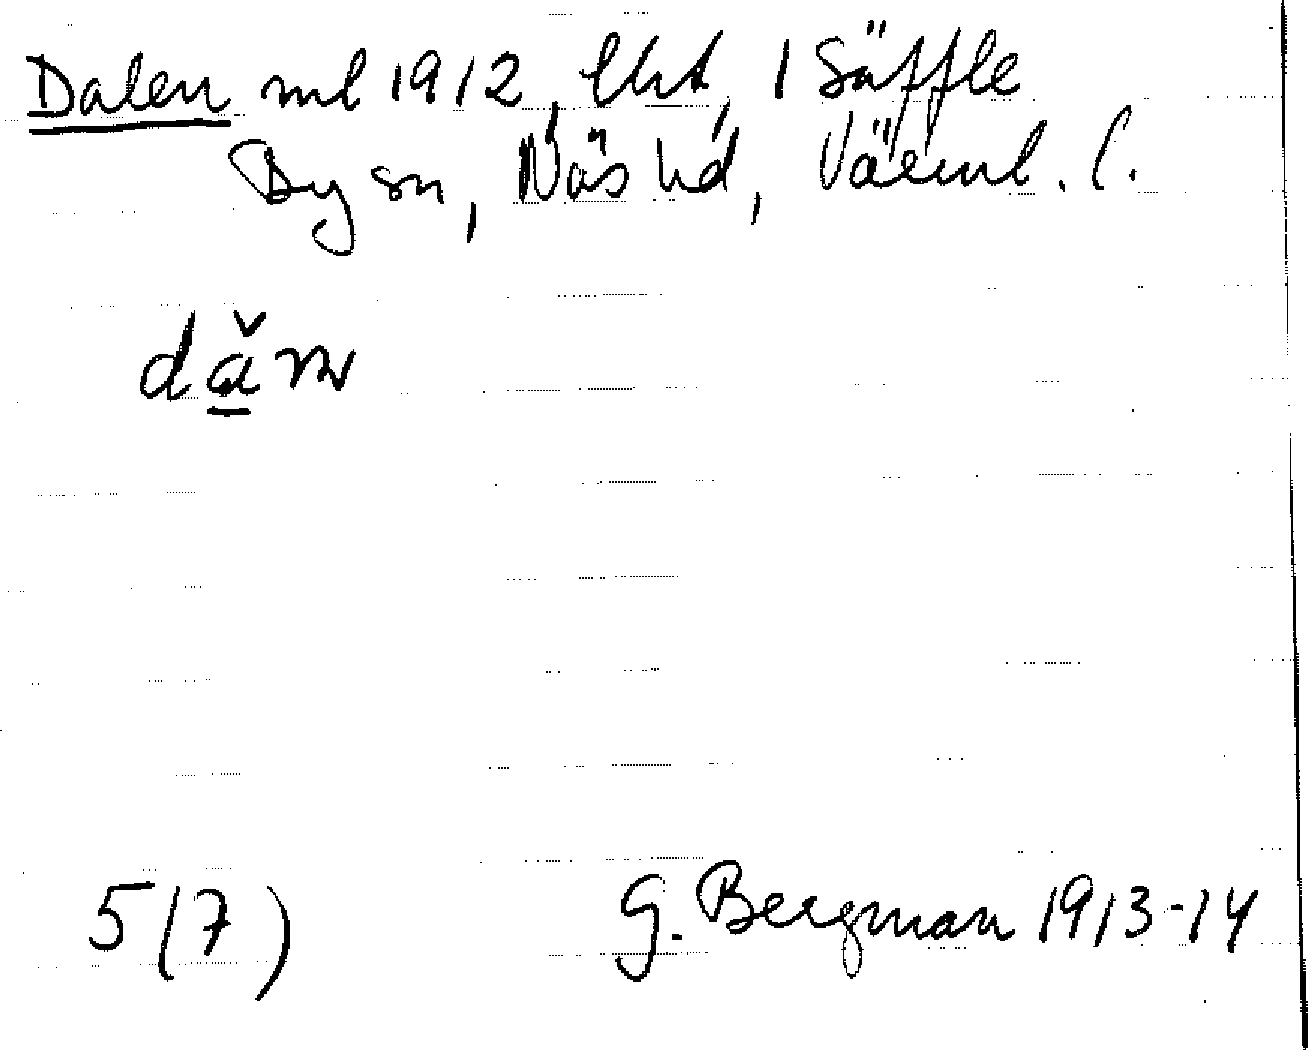 Dalen ml 1912, lht, 1 Säffle
By sn, Näs hd, Värml. l.
5(7) G. Bergman 1913-14